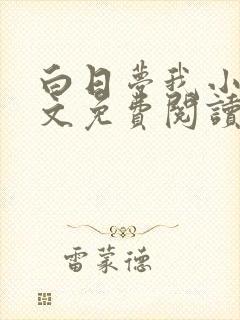 白日夢我 小
文免費閱讀
雷蒙德